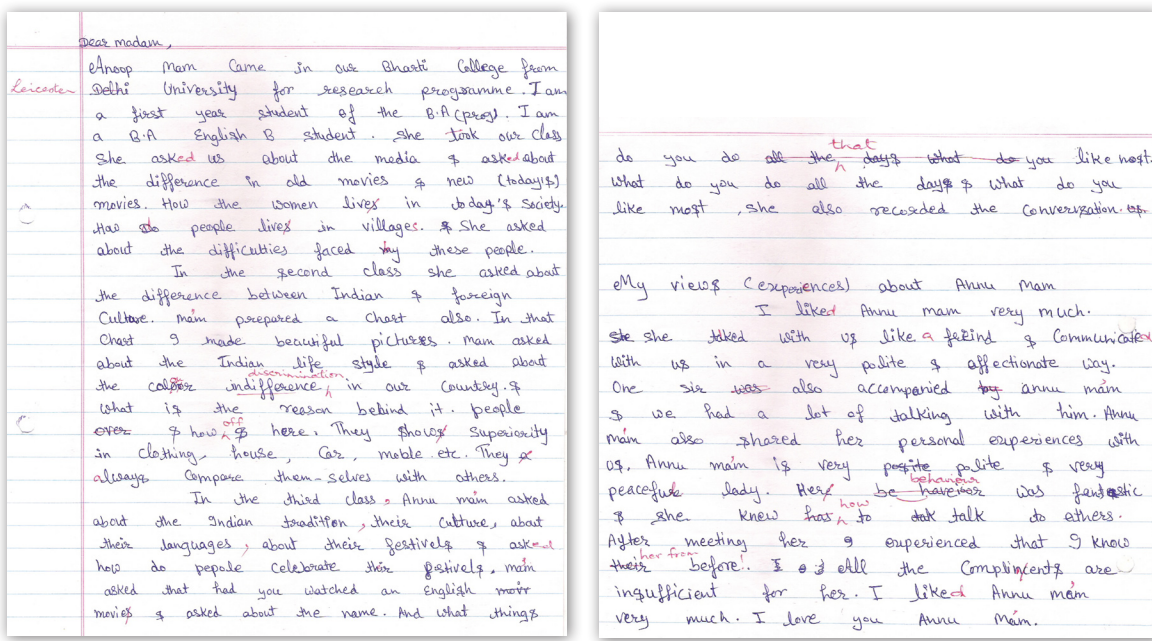 Dear madam,
Anoop Mam Came in our Bharti College from
Leicester Delhi University for research programme. I am
a first year student of the B.A (prog). I am
a B.A English B student. She took our class
She asked us about the media & asked about
the difference in old movies & new (today's)
movies. How the women lives in today's Society.
How do people lives in villages. & She asked
about the difficulties faced by these people.
In the second class she asked about
the difference between Indian & foreign
Culture. mám prepared a Chart also. In that
Chart I made beautiful pictures. Mam asked
about the Indian life style & asked about
discrimination
the colour indifference in our Country. &
what is the reason behind it. people
off
over & how is here. They shows Superiority
in clothing, house, Car, moble etc. They
always Compare them-selves with others.
In the third class, Annu mám asked
about the Indian tradition, their Culture, about
their languages, about their festivels & asked
how do pepole celebrate their festivels. mám
asked that had you watched an English movi
movies & asked about the name. And what things
that
do you do all the days what do you like most.
What do you do all the days & what do you
like most, She also recorded the Converzation. us.
My views (experiences) about Annu Mam
I liked Annu mam very much.
she she talked with us like a freind & Communicated
with us in a very polite & affectionate way.
One sir was also accompanied by annu mám
& we had a lot of talking with him. Annu
mám also shared her personal experiences with
us. Annu mám is very posite polite & very
behaviour
peacefull lady. Her be haveior was fentastic
how
& she knew has to tak talk to others.
After meeting her I experienced that I know
her from
their before! All the Compliments are
insufficient for her. I liked Annu mám
very much. I love you Annu Mám.